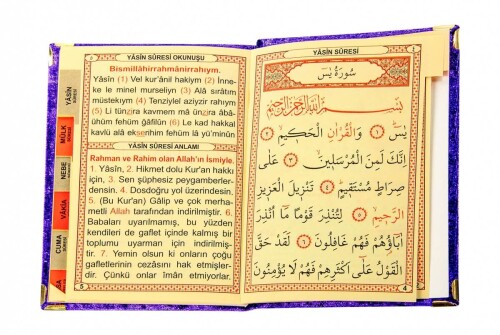 YÂSİN SÛRESİ OKUNUŞU
Bismillâhirrahmânirrahıym.
Yâsîn (1) Vel kur'ânil hakiym (2) İnne-
ke le minel murseliyn (3) Alâ sırâtım
müstekıym (4) Tenziylel aziyzir rahıym
(5) Li tünzira kavmem mâ ünzira âbâ-
ühüm fehüm ğâfilûn (6) Le kad hakkal
kavlü alâ ekserihim fehüm lâ yü'minûn
YÂSİN SÛRESİ ANLAMI
Rahman ve Rahim olan Allah'ın İsmiyle.
1. Yâsîn, 2. Hikmet dolu Kur'an hakkı
için, 3. Sen şüphesiz peygamberler-
densin. 4. Dosdoğru yol üzerindesin.
5. (Bu Kur'an) Gâlip ve çok merha-
metli Allah tarafından indirilmiştir. 6.
Babaları uyarılmamış, bu yüzden
kendileri de gaflet içinde kalmış bir
toplumu uyarman için indirilmiş-
tir. 7. Yemin olsun ki onların çoğu
gafletlerinin cezâsını hak etmişler-
dir. Çünkü onlar îmân etmiyorlar.
YÂSİN
SÛRESİ
MÜLK
NEBE
VÂKIA
CUMA
YÂSİN SÛRESİ
سُورَةُ يٰسٓ
بِسْمِ اللّٰهِ الرَّحْمٰنِ الرَّحِيمِ
يٰسٓ ﴿١﴾ وَالْقُرْاٰنِ الْحَكِيمِ ﴿٢﴾
اِنَّكَ لَمِنَ الْمُرْسَلِينَ ﴿٣﴾ عَلٰى
صِرَاطٍ مُسْتَقِيمٍ ﴿٤﴾ تَنْزِيلَ الْعَزِيزِ
الرَّحِيمِ ﴿٥﴾ لِتُنْذِرَ قَوْمًا مَٓا اُنْذِرَ
اٰبَٓاؤُ۬هُمْ فَهُمْ غَافِلُونَ ﴿٦﴾ لَقَدْ حَقَّ
الْقَوْلُ عَلٰٓى اَكْثَرِهِمْ فَهُمْ لَا يُؤْمِنُونَ